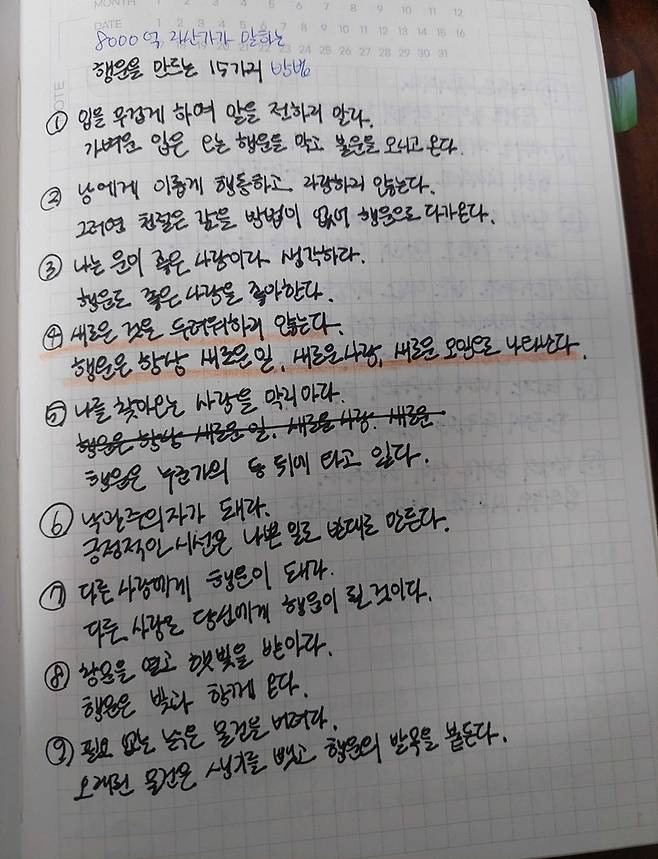 MONTH 1 2 3 4 5 6 7 8 9 10 11 12
DATE 1 2 3 4 5 6 7 8 9 10 11 12 13 14 15 16
17 18 19 20 21 22 23 24 25 26 27 28 29 30 31
NOTE
8000억 자산가가 말하는
행운을 만드는 15가지 방법
① 입을 무겁게 하며 말을 전하지 말라.
가벼운 입은 오는 행운을 막고 불운을 모시고 온다.
② 남에게 이롭게 행동하고 자랑하지 않는다.
그러면 친절은 갚을 방법이 없어 행운으로 다가온다.
③ 나는 운이 좋은 사람이다 생각하다.
행운도 좋은 사람을 좋아한다.
④ 새로운 것을 두려워하지 않는다.
행운은 항상 새로운 일, 새로운 사람, 새로운 모임으로 나타난다.
⑤ 나를 찾아오는 사람을 막지 마라.
행운은 항상 새로운 일, 새로운 사람, 새로운
행운은 누군가의 등 뒤에 타고 있다.
⑥ 낙관주의자가 돼라.
긍정적인 시선은 나쁜 일도 반대로 만든다.
⑦ 다른 사람에게 행운이 돼라.
다른 사람도 당신에게 행운이 될 것이다.
⑧ 창문을 열고 햇빛을 받아라.
행운은 빛과 함께 온다.
⑨ 필요 없는 낡은 물건을 버려라.
오래된 물건은 생기를 뺏고 행운의 발목을 붙든다.